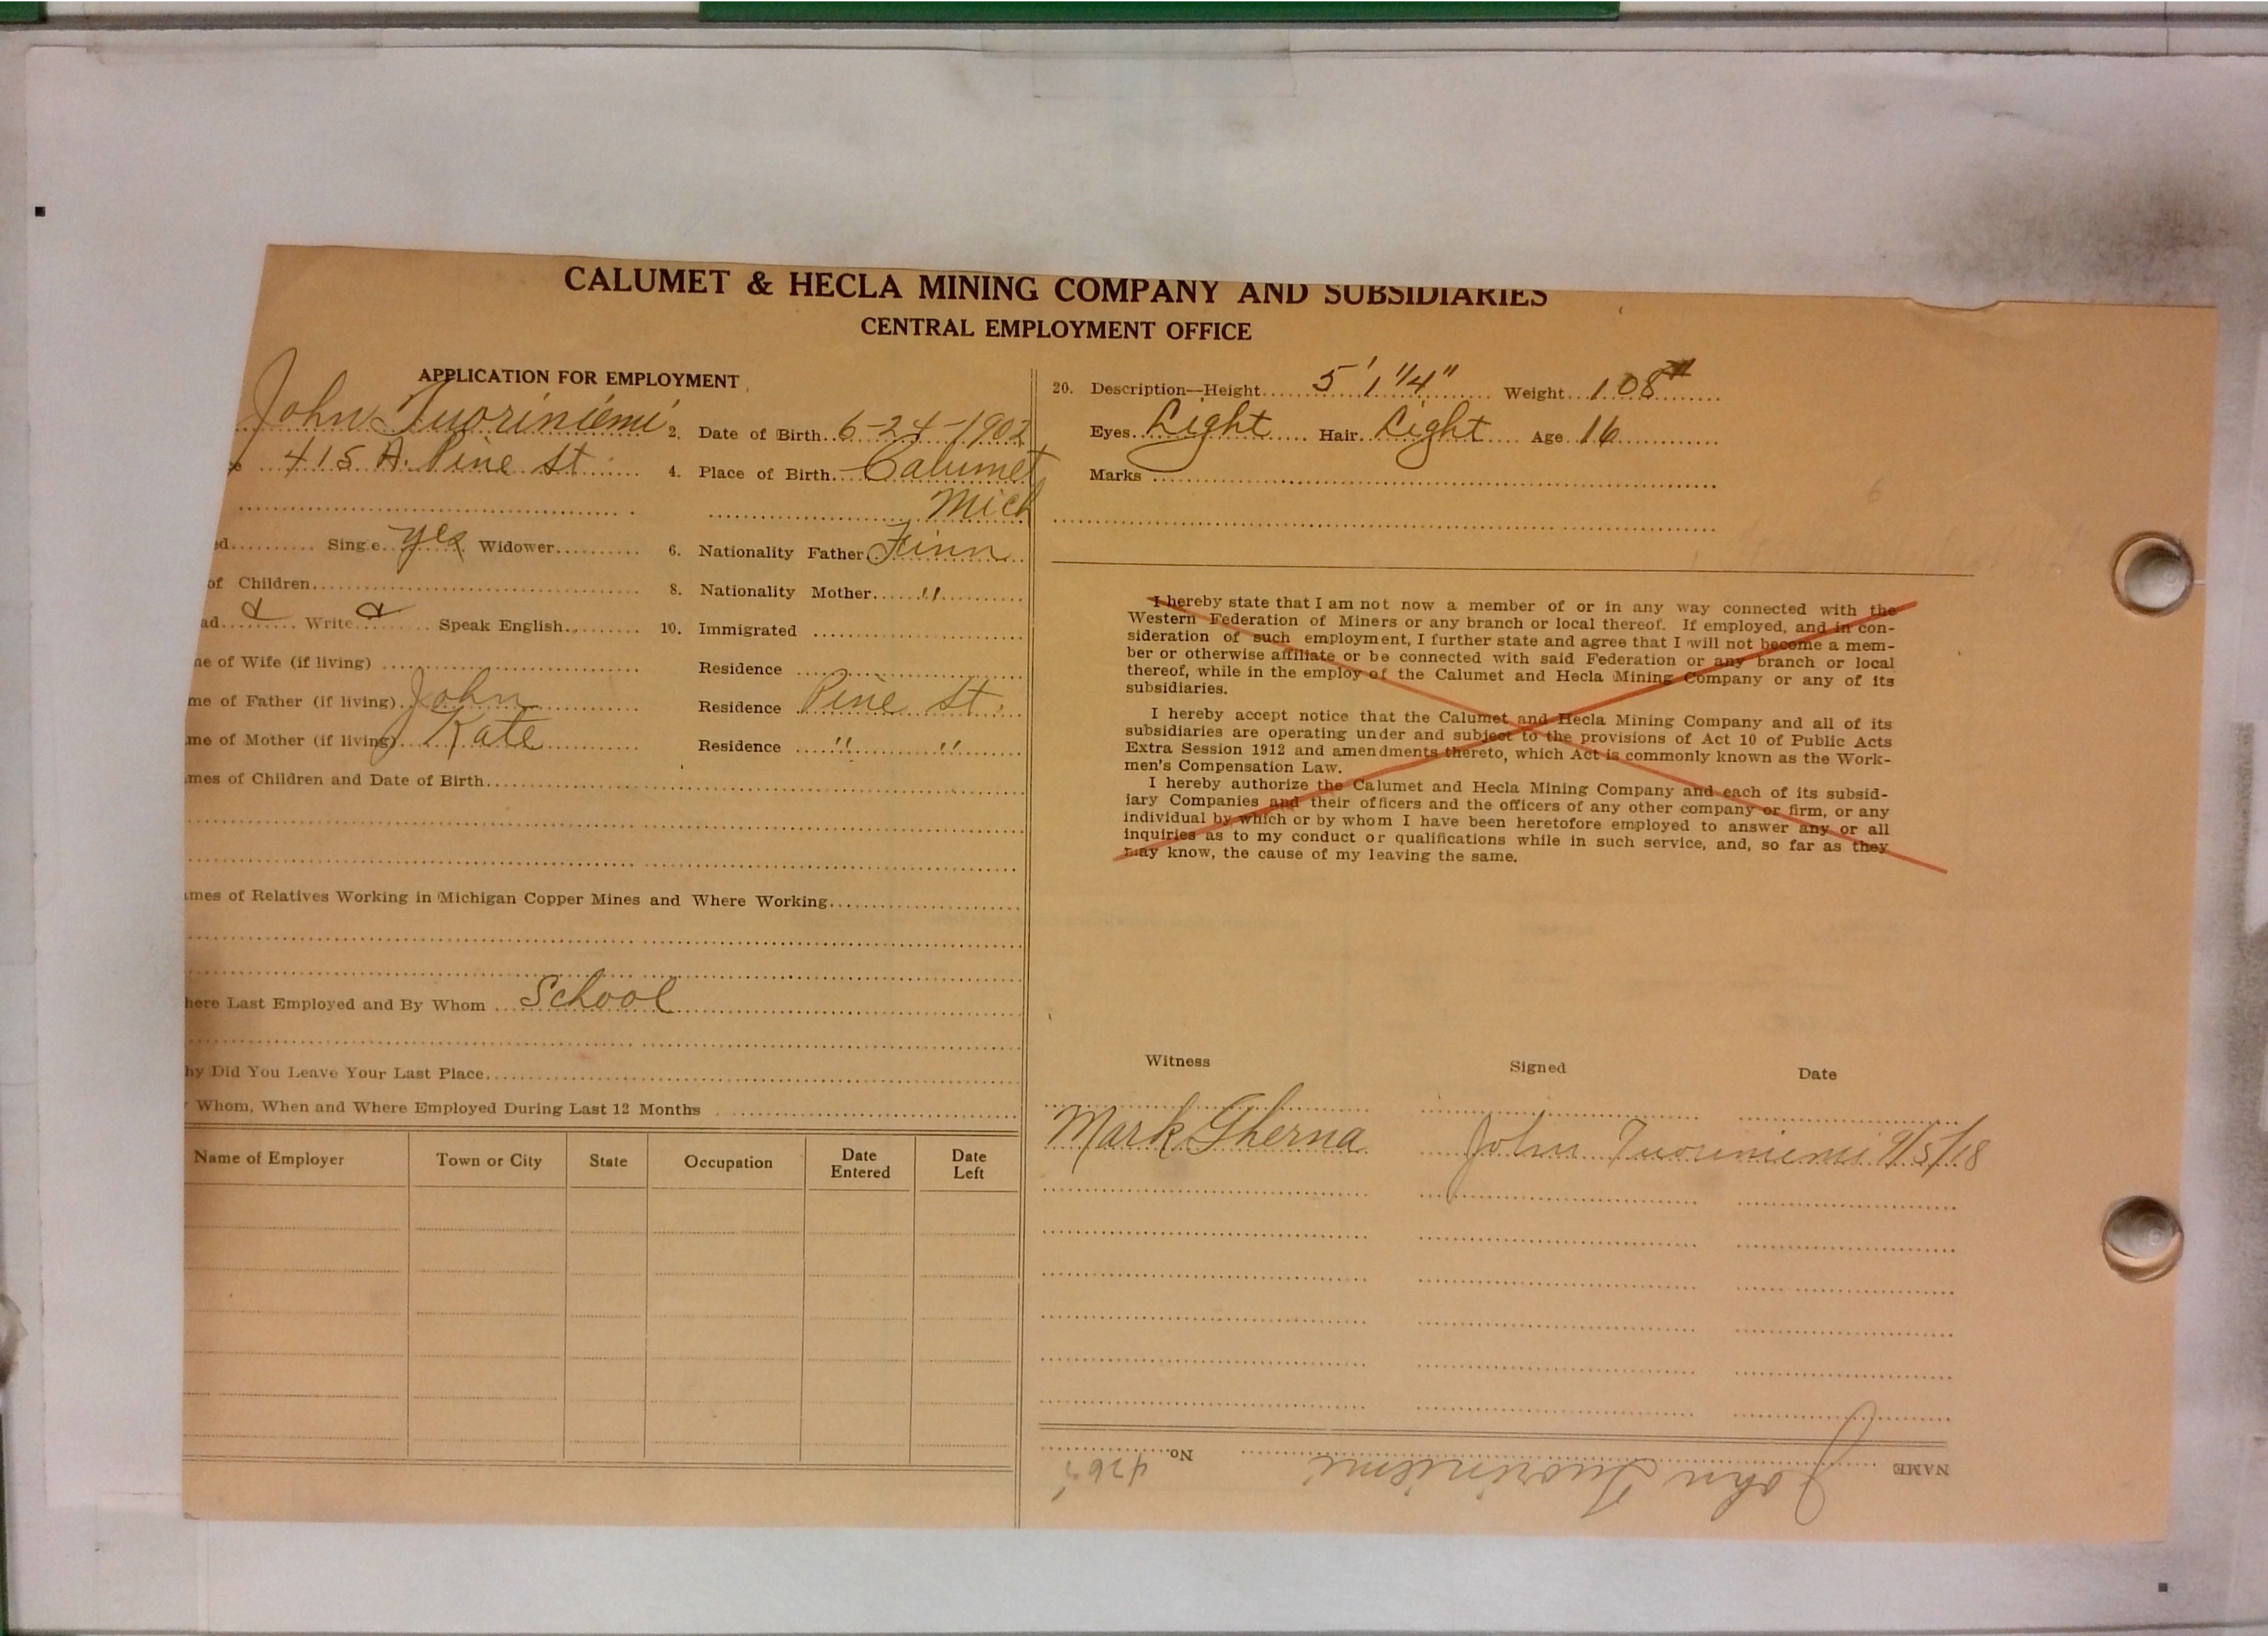 CALUMET & HECLA MINING COMPANY AND SUBSIDIARIES
CENTRAL EMPLOYMENT OFFICE
APPLICATION FOR EMPLOYMENT
John Tuoriniemi 2. Date of Birth 6-24-1902
415 A. Pine St 4. Place of Birth Calumet
Mich
ed Single yes Widower 6. Nationality Father Finn
of Children 8. Nationality Mother " "
ad Write Speak English 10. Immigrated
me of Wife (if living) Residence
me of Father (if living) John Residence Pine St.
me of Mother (if living) Kate Residence " "
mes of Children and Date of Birth
mes of Relatives Working in Michigan Copper Mines and Where Working
here Last Employed and By Whom School
hy Did You Leave Your Last Place
Whom, When and Where Employed During Last 12 Months
Name of Employer Town or City State Occupation Date Entered Date Left
20. Description—Height 5' 1 1/4" Weight 108#
Eyes Light Hair Light Age 16
Marks
I hereby state that I am not now a member of or in any way connected with the
Western Federation of Miners or any branch or local thereof. If employed, and in con-
sideration of such employment, I further state and agree that I will not become a mem-
ber or otherwise affiliate or be connected with said Federation or any branch or local
thereof, while in the employ of the Calumet and Hecla Mining Company or any of its
subsidiaries.
I hereby accept notice that the Calumet and Hecla Mining Company and all of its
subsidiaries are operating under and subject to the provisions of Act 10 of Public Acts
Extra Session 1912 and amendments thereto, which Act is commonly known as the Work-
men's Compensation Law.
I hereby authorize the Calumet and Hecla Mining Company and each of its subsid-
iary Companies and their officers and the officers of any other company or firm, or any
individual by which or by whom I have been heretofore employed to answer any or all
inquiries as to my conduct or qualifications while in such service, and, so far as they
may know, the cause of my leaving the same.
Witness Signed Date
Mark Gherna John Tuoriniemi 9/5/18
NAME John Tuoriniemi No.